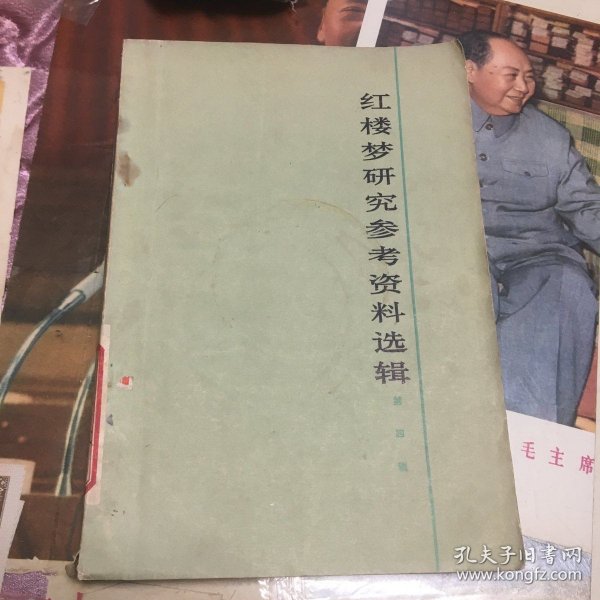 红楼梦研究参考资料选辑
第四辑
毛主席
孔夫子旧书网
www.kongfz.com